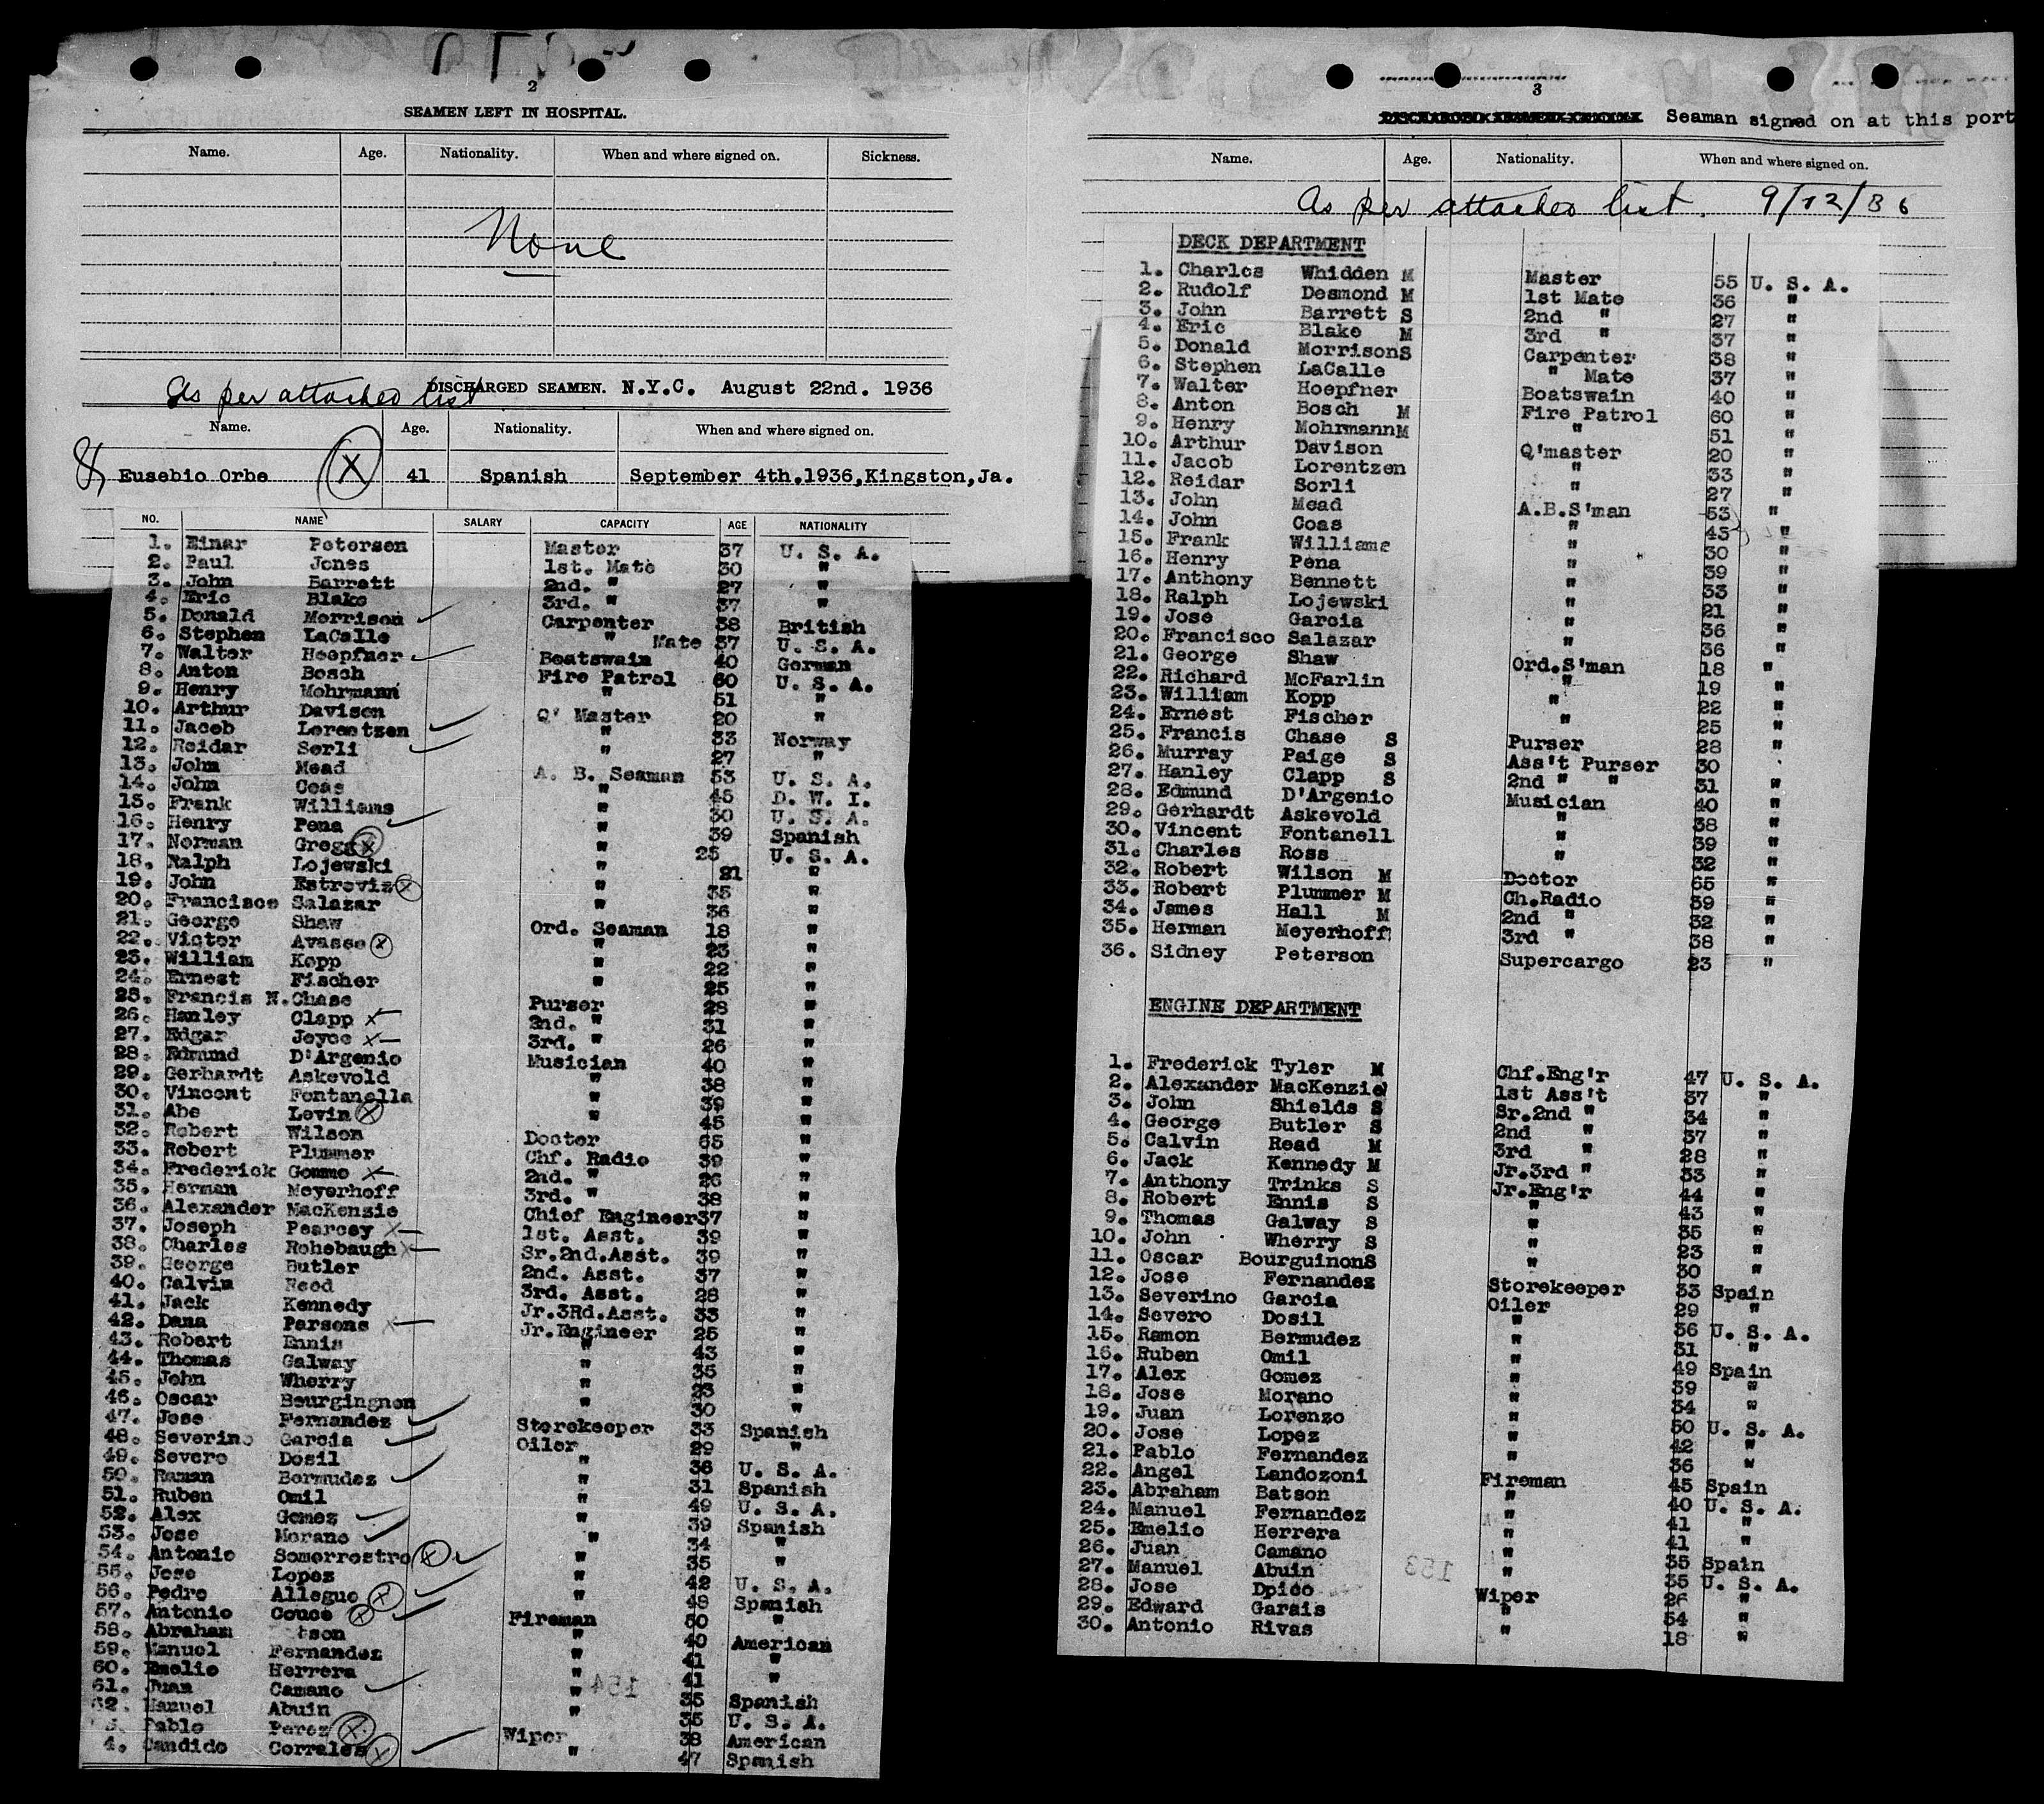 2
SEAMEN LEFT IN HOSPITAL.
Name. Age. Nationality. When and where signed on. Sickness.
None
As per attached list
DISCHARGED SEAMEN. N.Y.C. August 22nd. 1936
Name. Age. Nationality. When and where signed on.
Eusebio Orbe X 41 Spanish September 4th.1936,Kingston,Ja.
NO. NAME SALARY CAPACITY AGE NATIONALITY
1. Einar Petersen Master 37 U. S. A.
2. Paul Jones 1st. Mate 30 "
3. John Barrett 2nd. " 27 "
4. Eric Blake 3rd. " 37 "
5. Donald Morrison Carpenter 38 British
6. Stephen LaCalle " Mate 37 U. S. A.
7. Walter Hoepfner Boatswain 40 German
8. Anton Bosch Fire Patrol 60 U. S. A.
9. Henry Mohrmann " 51 "
10. Arthur Davison Q' Master 20 "
11. Jacob Lorentzen " 33 Norway
12. Reidar Sorli " 27 "
13. John Mead A. B. Seaman 53 U. S. A.
14. John Coas " 45 D. W. I.
15. Frank Williams " 30 U. S. A.
16. Henry Pena " 39 Spanish
17. Norman Gregg X " 25 U. S. A.
18. Ralph Lojewski " 21 "
19. John Estroviz X " 35 "
20. Francisco Salazar " 36 "
21. George Shaw Ord. Seaman 18 "
22. Victor Avasse X " 23 "
23. William Kopp " 22 "
24. Ernest Fischer " 25 "
25. Francis N. Chase Purser 28 "
26. Hanley Clapp x 2nd. " 31 "
27. Edgar Joyce x 3rd. " 26 "
28. Edmund D'Argenio Musician 40 "
29. Gerhardt Askevold " 38 "
30. Vincent Fontanella " 39 "
31. Abe Levin X " 45 "
32. Robert Wilson Doctor 65 "
33. Robert Plummer Chf. Radio 39 "
34. Frederick Gommo x 2nd. " 26 "
35. Herman Meyerhoff 3rd. " 38 "
36. Alexander MacKenzie Chief Engineer 37 "
37. Joseph Pearcey x 1st. Asst. 39 "
38. Charles Rohebaugh x Sr.2nd.Asst. 39 "
39. George Butler 2nd. Asst. 37 "
40. Calvin Reed 3rd. Asst. 28 "
41. Jack Kennedy Jr.3Rd.Asst. 33 "
42. Dana Parsons x Jr.Engineer 25 "
43. Robert Ennis " 43 "
44. Thomas Galway " 35 "
45. John Wherry " 23 "
46. Oscar Bourgingnon " 30 "
47. Jose Fernandez Storekeeper 33 Spanish
48. Severino Garcia Oiler 29 "
49. Severo Dosil " 36 U. S. A.
50. Raman Bermudez " 31 Spanish
51. Ruben Omil " 49 U. S. A.
52. Alex Gomez " 39 Spanish
53. Jose Morano " 34 "
54. Antonio Somorrostro X " 35 "
55. Jose Lopez " 42 U. S. A.
56. Pedro Allegue X " 48 Spanish
57. Antonio Couce X Fireman 50 "
58. Abraham tson " 40 American
59. Manuel Fernandez " 41 "
60. Emelio Herrera " 41 "
61. Juan Camano " 35 Spanish
62. Manuel Abuin " 35 U. S. A.
3. Pablo Perez X Wiper 38 American
4. Candido Corrales X " 47 Spanish
154
3
Seaman signed on at this port
Name. Age. Nationality. When and where signed on.
As per attached list. 9/12/36
DECK DEPARTMENT
1. Charles Whidden M Master 55 U. S. A.
2. Rudolf Desmond M 1st Mate 36 "
3. John Barrett S 2nd " 27 "
4. Eric Blake M 3rd " 37 "
5. Donald Morrison S Carpenter 38 "
6. Stephen LaCalle " Mate 37 "
7. Walter Hoepfner Boatswain 40 "
8. Anton Bosch M Fire Patrol 60 "
9. Henry Mohrmann M " 51 "
10. Arthur Davison Q'master 20 "
11. Jacob Lorentzen " 33 "
12. Reidar Sorli " 27 "
13. John Mead A.B.S'man 53 "
14. John Coas " 45 "
15. Frank Williams " 30 "
16. Henry Pena " 39 "
17. Anthony Bennett " 33 "
18. Ralph Lojewski " 21 "
19. Jose Garcia " 36 "
20. Francisco Salazar " 36 "
21. George Shaw Ord.S'man 18 "
22. Richard McFarlin " 19 "
23. William Kopp " 22 "
24. Ernest Fischer " 25 "
25. Francis Chase S Purser 28 "
26. Murray Paige S Ass't Purser 30
27. Hanley Clapp S 2nd " " 31 "
28. Edmund D'Argenio Musician 40 "
29. Gerhardt Askevold " 38 "
30. Vincent Fontanell " 39 "
31. Charles Ross " 32 "
32. Robert Wilson M Doctor 65 "
33. Robert Plummer M Ch.Radio 39 "
34. James Hall M 2nd " 32 "
35. Herman Meyerhoff 3rd " 38 "
36. Sidney Peterson Supercargo 23 "
ENGINE DEPARTMENT
1. Frederick Tyler M Chf.Eng'r 47 U. S. A.
2. Alexander MacKenzie 1st Ass't 37 "
3. John Shields S Sr.2nd " 34 "
4. George Butler S 2nd " 37 "
5. Calvin Read M 3rd " 28 "
6. Jack Kennedy M Jr.3rd " 33 "
7. Anthony Trinks S Jr.Eng'r 44 "
8. Robert Ennis S " 43 "
9. Thomas Galway S " 35 "
10. John Wherry S " 23 "
11. Oscar Bourguinon S " 30 "
12. Jose Fernandez Storekeeper 33 Spain
13. Severino Garcia Oiler 29 "
14. Severo Dosil " 36 U. S. A.
15. Ramon Bermudez " 31 "
16. Ruben Omil " 49 Spain
17. Alex Gomez " 39 "
18. Jose Morano " 34 "
19. Juan Lorenzo " 50 U. S. A.
20. Jose Lopez " 42 "
21. Pablo Fernandez " 36 "
22. Angel Landozoni Fireman 45 Spain
23. Abraham Batson " 40 U. S. A.
24. Manuel Fernandez " 41 "
25. Emelio Herrera " 41 "
26. Juan Camano " 35 Spain
27. Manuel Abuin " 35 U. S. A.
28. Jose Dpico Wiper 26 "
29. Edward Garais " 54 "
30. Antonio Rivas " 18 "
153